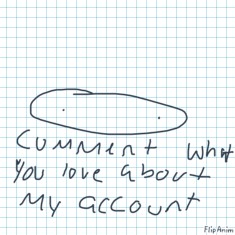 Cumment what
you love about
My account
FlipAnim